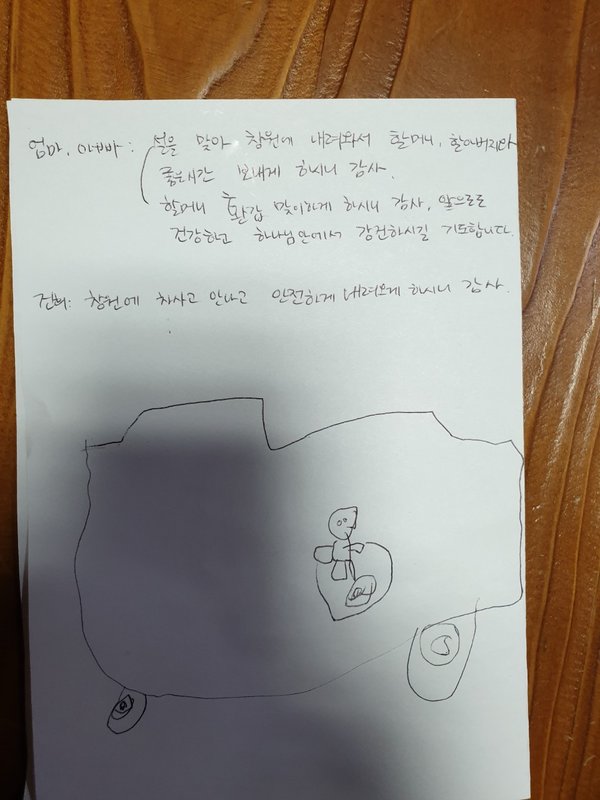 엄마, 아빠 : 설을 맞아 창원에 내려와서 할머니, 할아버지와
좋은시간 보내게 하시니 감사.
할머니 환갑 맞이하게 하시니 감사, 앞으로도
건강하고 하나님안에서 강건하시길 기도합니다.
건희: 창원에 차사고 안나고 안전하게 내려오게 하시니 감사.